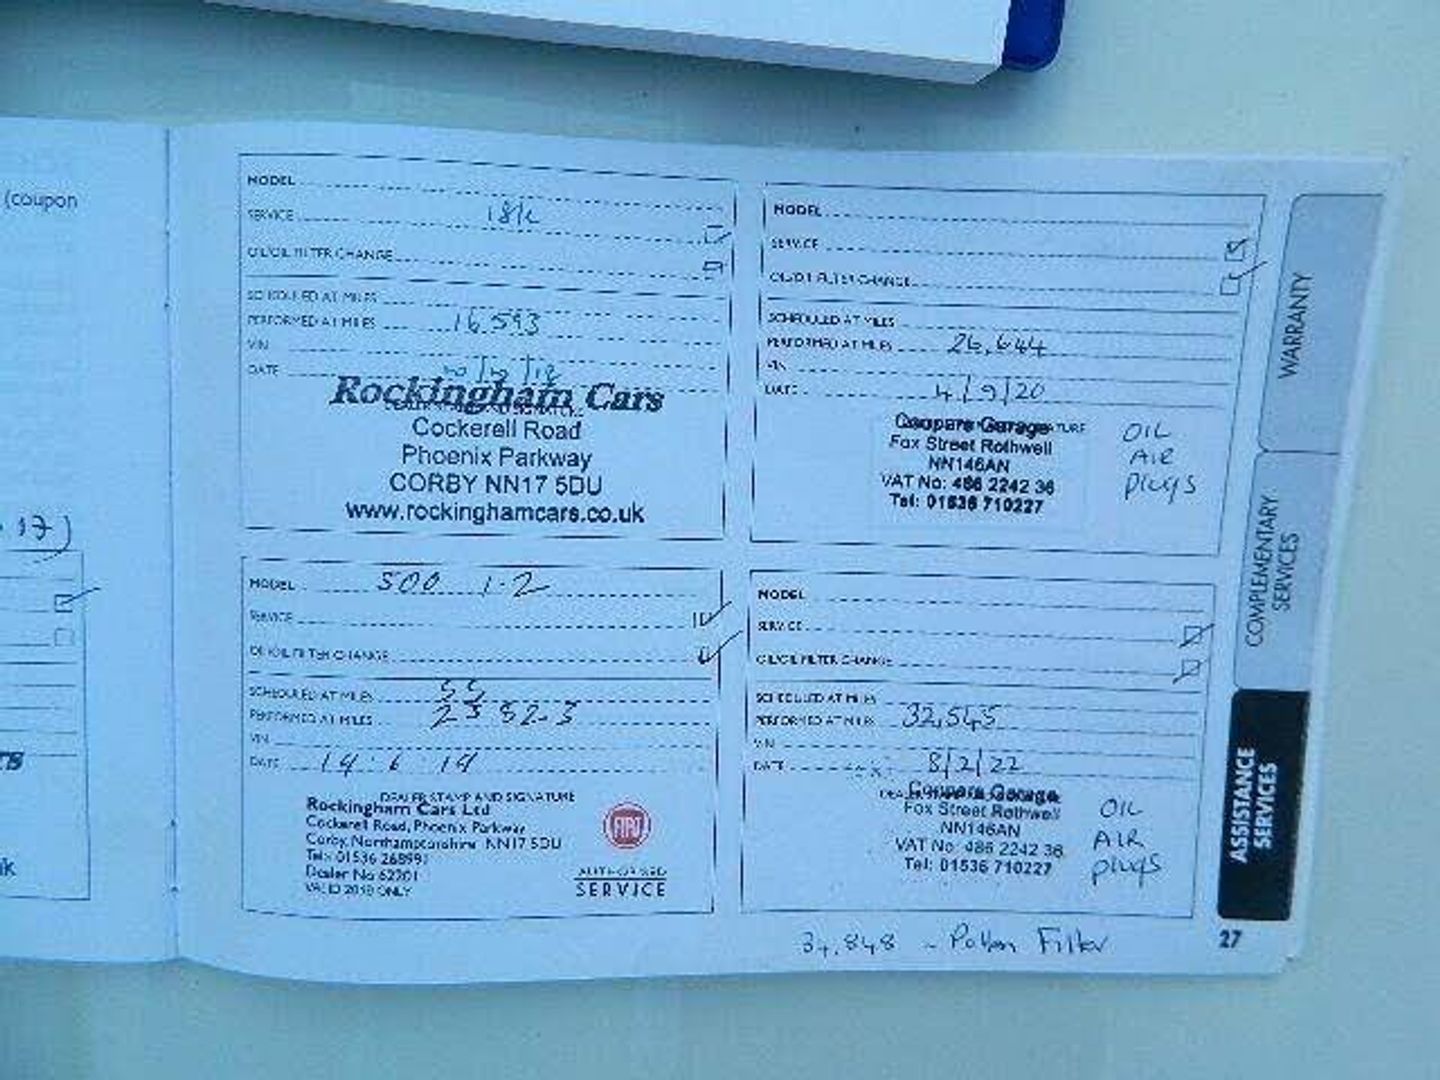 (coupon
17)
MODEL
SERVICE 18K
OIL/OIL FILTER CHANGE
SCHEDULED AT MILES
PERFORMED AT MILES 16,593
VIN
DATE
Rockingham Cars
Cockerell Road
Phoenix Parkway
CORBY NN17 5DU
www.rockinghamcars.co.uk
MODEL
SERVICE
OIL/OIL FILTER CHANGE
SCHEDULED AT MILES
PERFORMED AT MILES 26,644
VIN
DATE 4/9/20
Coopers Garage
Fox Street Rothwell
NN146AN
VAT No: 486 2242 36
Tel: 01536 710227
OIL
AIR
plugs
MODEL 500 1.2
SERVICE
OIL/OIL FILTER CHANGE
SCHEDULED AT MILES
PERFORMED AT MILES
VIN
DATE
DEALER STAMP AND SIGNATURE
Rockingham Cars Ltd
Cockerell Road, Phoenix Parkway
Corby, Northamptonshire NN17 5DU
Tel: 01536 268991
Dealer No 62201
VALID 2019 ONLY
FIAT
AUTHORISED
SERVICE
MODEL
SERVICE
OIL/OIL FILTER CHANGE
SCHEDULED AT MILES
PERFORMED AT MILES 32,545
VIN
DATE 8/2/22
Coopers Garage
Fox Street Rothwell
NN146AN
VAT No: 486 2242 36
Tel: 01536 710227
OIL
AIR
plugs
34,848 - Pollen Filter
27
WARRANTY
COMPLEMENTARY
SERVICES
ASSISTANCE
SERVICES